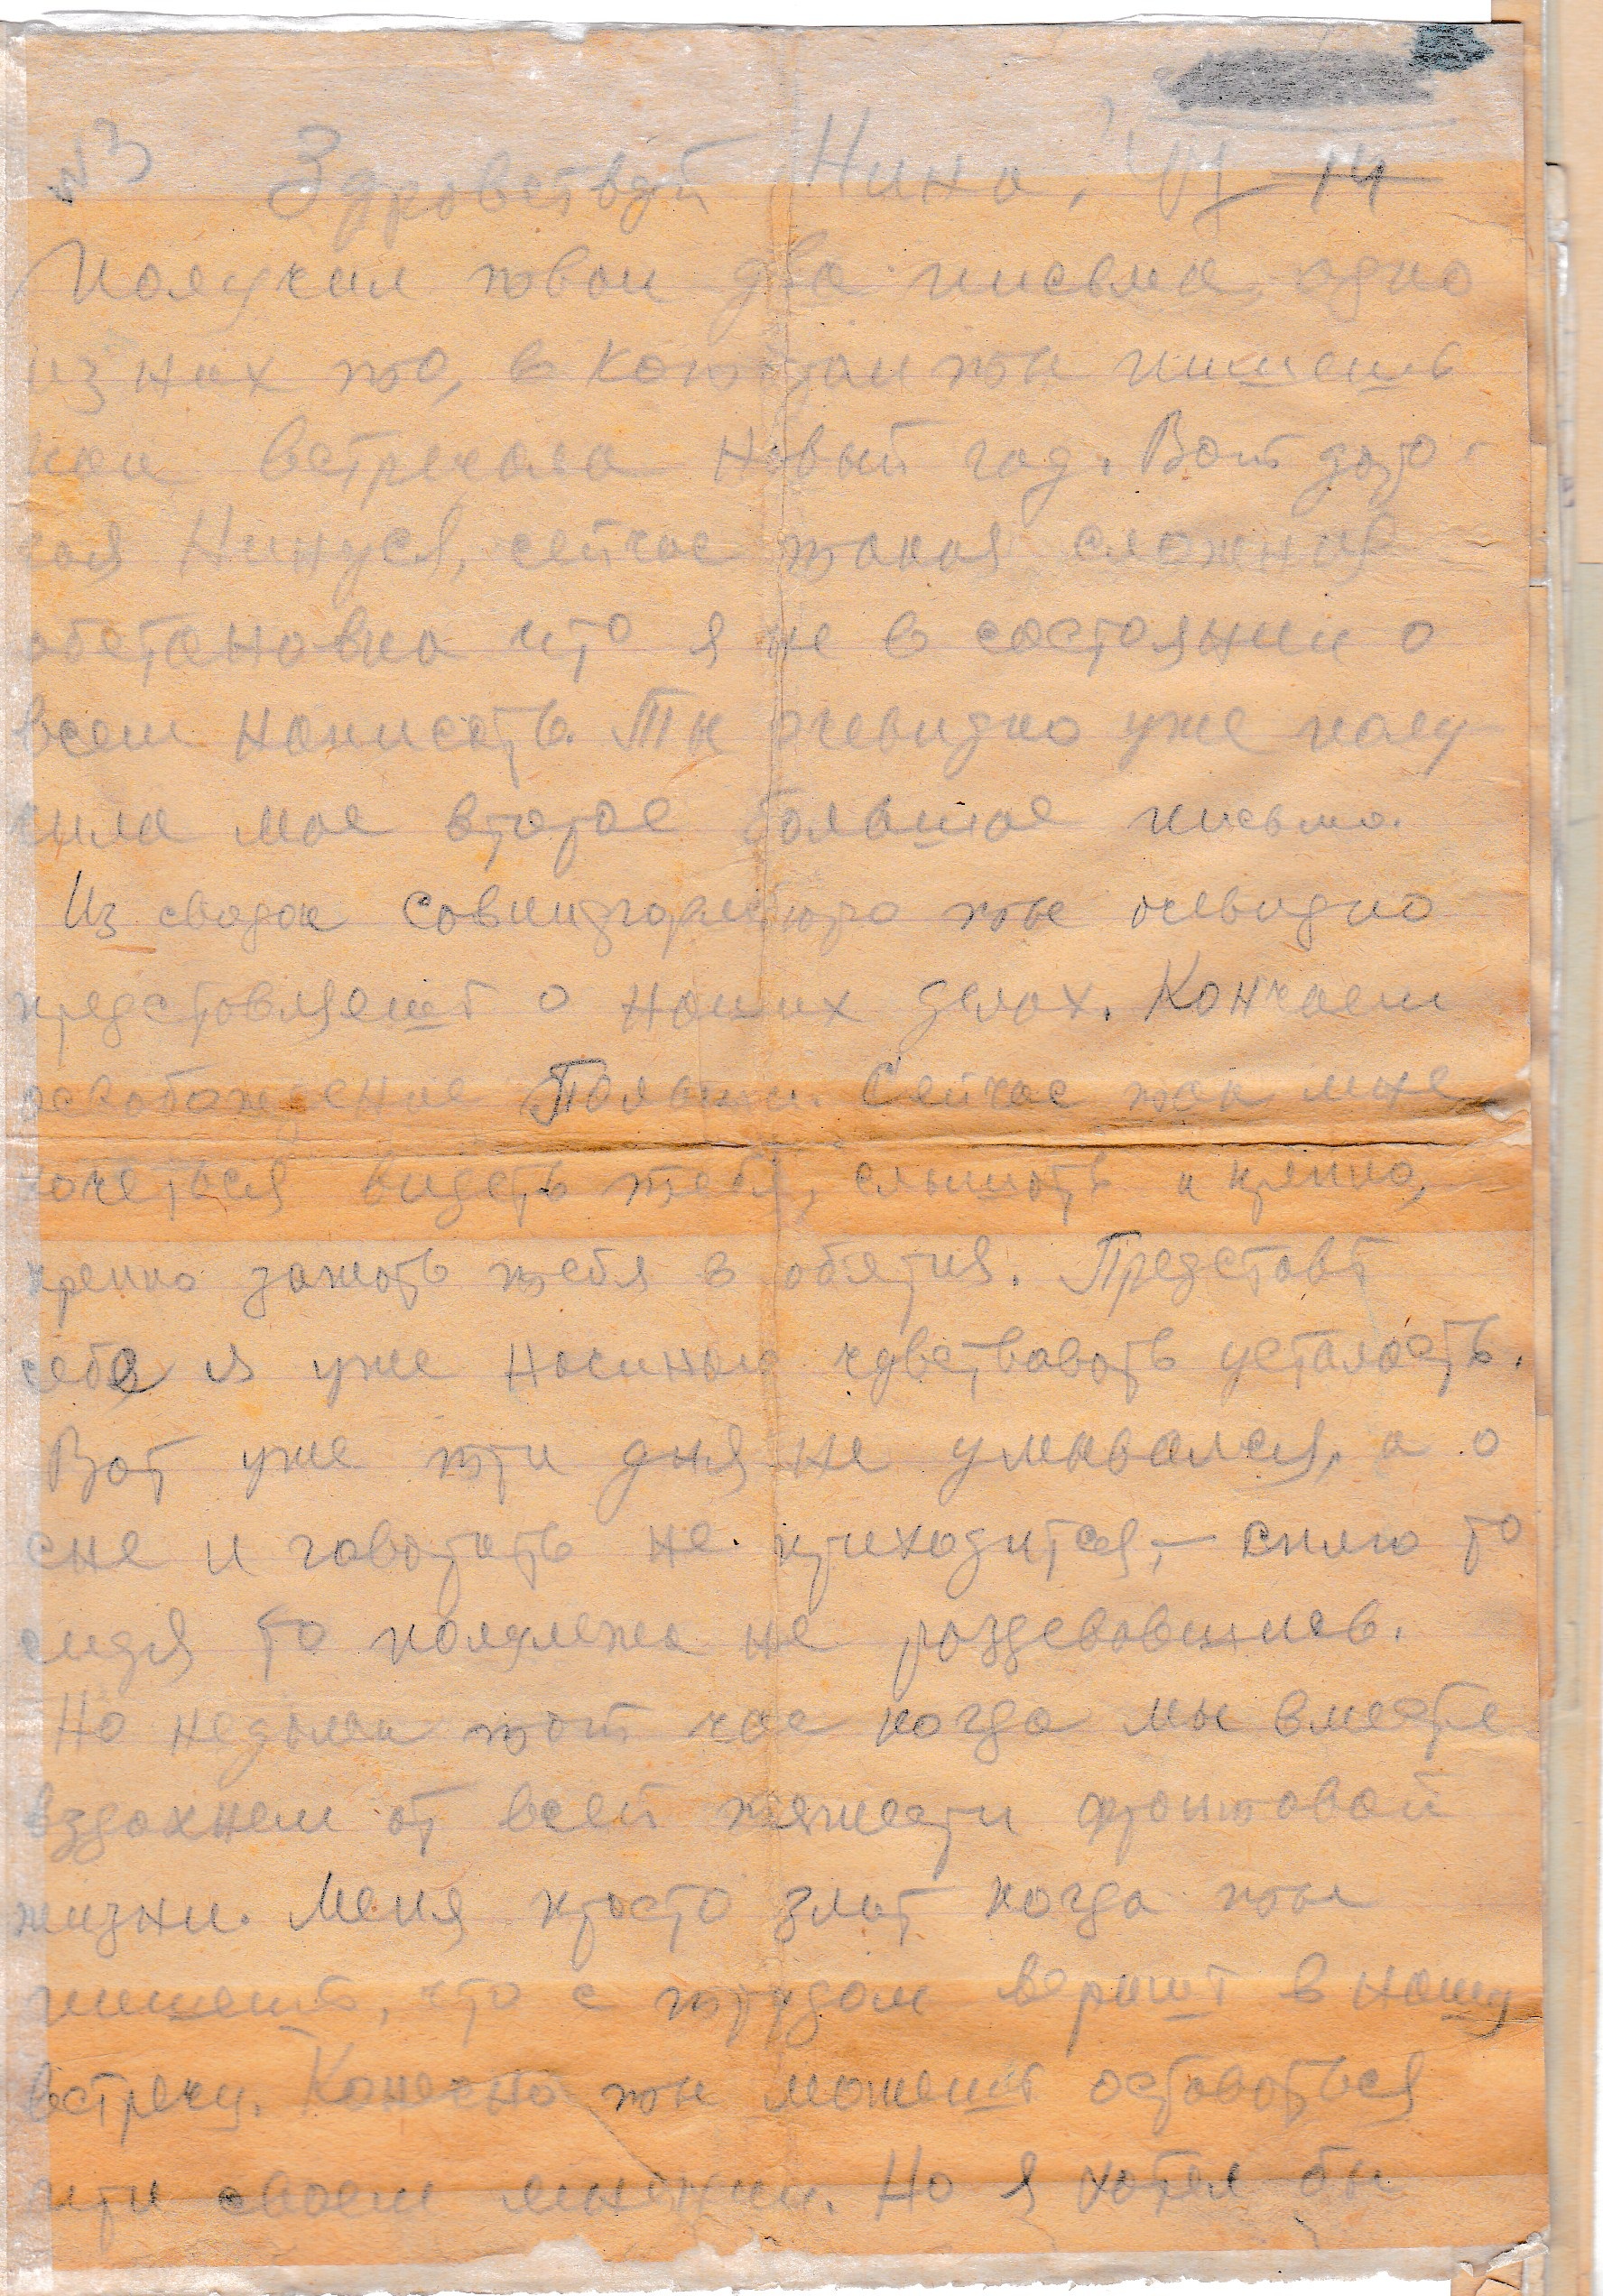 №3 Здравствуй Нина! 14
Получил твои два письма, одно
из них то, в котором ты пишешь
как встречала новый год. Вот доро-
гая Нинуся, сейчас такая сложная
обстановка что я не в состоянии о
всем написать. Ты очевидно уже полу
чила мое второе большое письмо.
Из сводок совинформбюро ты очевидно
представляешь о наших делах. Кончаем
освобождение Польши. Сейчас так мне
хочеться видеть тебя, слышать и крепко,
крепко зажать тебя в обятия. Представь
себе я уже начинаю чувствовать усталость.
Вот уже три дня не умывался, а о
сне и говорить не приходится, – сплю то
сидя то полулежа не раздевавшись.
Но недалек тот час когда мы вместе
вздохнем от всей тяжести фронтовой
жизни. Меня просто злит когда ты
пишешь, что с трудом веришь в нашу
встречу. Конечно ты можешь оставаться
при своем мнении. Но я хотел бы